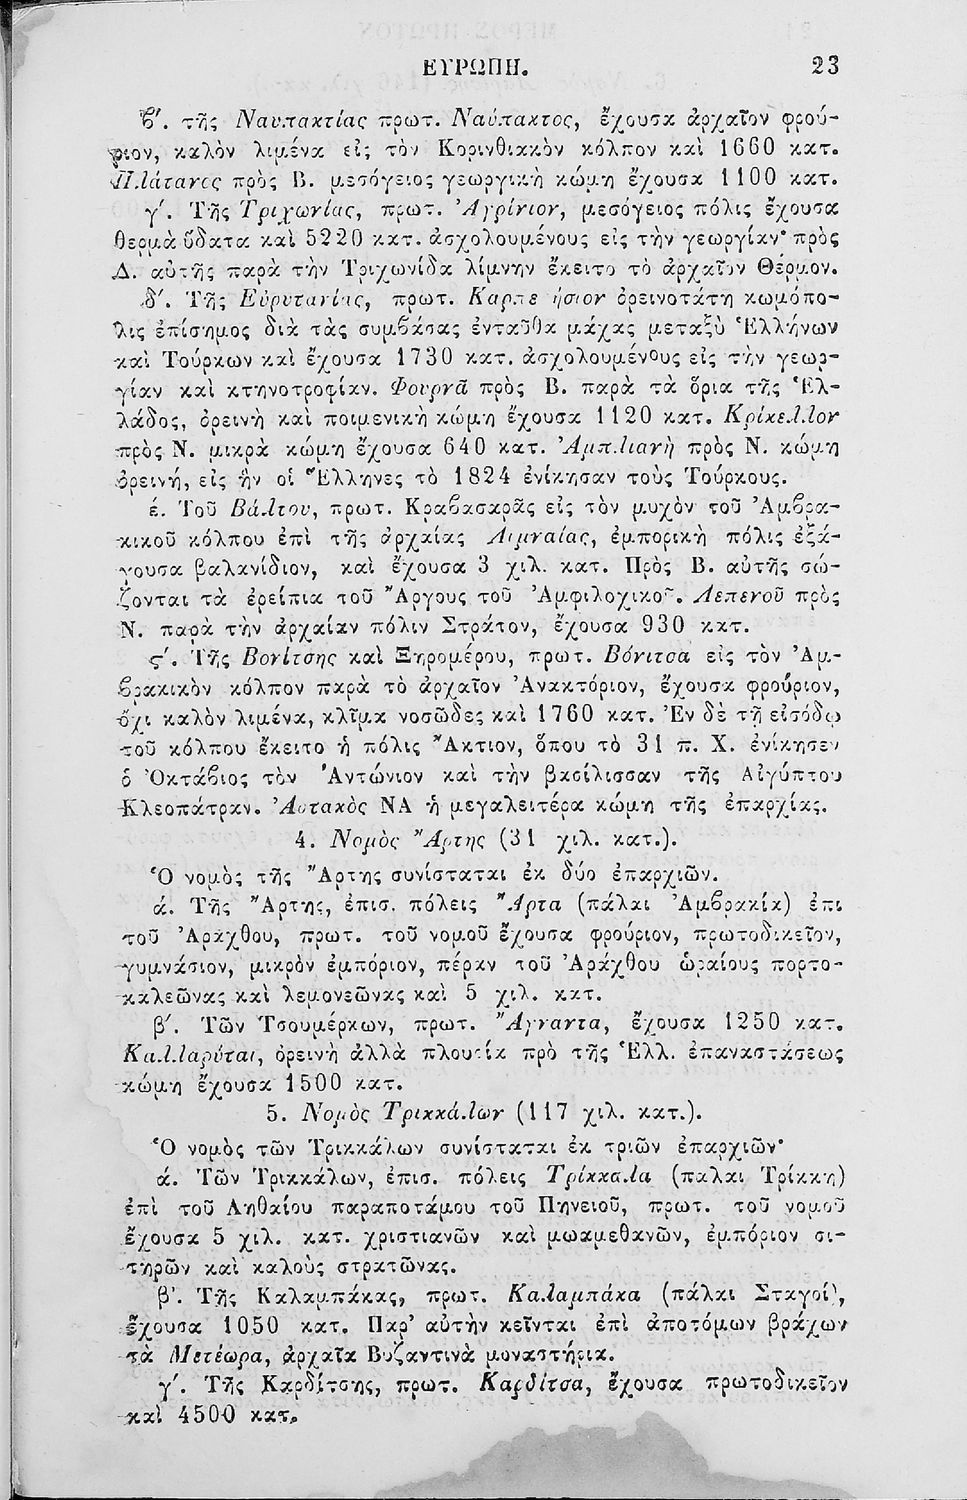 ΕΥΡΩΠΗ. 23
β′. τῆς Ναυπακτίας πρωτ. Ναύπακτος, ἔχουσα ἀρχαῖον φρού-
ριον, καλὸν λιμένα εἰς τὸν Κορινθιακὸν κόλπον καὶ 1660 κατ.
Πλάτανος πρὸς Β. μεσόγειος γεωργικὴ κώμη ἔχουσα 1100 κατ.
γ′. Τῆς Τριχωνίας, πρωτ. Ἀγρίνιον, μεσόγειος πόλις ἔχουσα
θερμὰ ὕδατα καὶ 5220 κατ. ἀσχολουμένους εἰς τὴν γεωργίαν· πρὸς
Δ. αὐτῆς παρὰ τὴν Τριχωνίδα λίμνην ἔκειτο τὸ ἀρχαῖον Θέρμον.
δ′. Τῆς Εὐρυτανίας, πρωτ. Καρπενήσιον ὀρεινοτάτη κωμόπο-
λις ἐπίσημος διὰ τὰς συμβάσας ἐνταῦθα μάχας μεταξὺ Ἑλλήνων
καὶ Τούρκων καὶ ἔχουσα 1730 κατ. ἀσχολουμένους εἰς τὴν γεωρ-
γίαν καὶ κτηνοτροφίαν. Φουρνᾶ πρὸς Β. παρὰ τὰ ὅρια τῆς Ἑλ-
λάδος, ὀρεινὴ καὶ ποιμενικὴ κώμη ἔχουσα 1120 κατ. Κρίκελλον
πρὸς Ν. μικρὰ κώμη ἔχουσα 640 κατ. Ἀμπλιανὴ πρὸς Ν. κώμη
ὀρεινή, εἰς ἣν οἱ Ἕλληνες τὸ 1824 ἐνίκησαν τοὺς Τούρκους.
έ. Τοῦ Βάλτου, πρωτ. Κραβασαρᾶς εἰς τὸν μυχὸν τοῦ Ἀμβρα-
κικοῦ κόλπου ἐπὶ τῆς ἀρχαίας Λιμναίας, ἐμπορικὴ πόλις ἐξά-
γουσα βαλανίδιον, καὶ ἔχουσα 3 χιλ. κατ. Πρὸς Β. αὐτῆς σώ-
ζονται τὰ ἐρείπια τοῦ Ἄργους τοῦ Ἀμφιλοχικοῦ. Λεπενοῦ πρὸς
Ν. παρὰ τὴν ἀρχαίαν πόλιν Στράτον, ἔχουσα 930 κατ.
ς′. Τῆς Βονίτσης καὶ Ξηρομέρου, πρωτ. Βόνιτσα εἰς τὸν Ἀμ-
βρακικὸν κόλπον παρὰ τὸ ἀρχαῖον Ἀνακτόριον, ἔχουσα φρούριον,
ὄχι καλὸν λιμένα, κλῖμα νοσῶδες καὶ 1760 κατ. Ἐν δὲ τῇ εἰσόδῳ
τοῦ κόλπου ἔκειτο ἡ πόλις Ἄκτιον, ὅπου τὸ 31 π. Χ. ἐνίκησεν
ὁ Ὀκτάβιος τὸν Ἀντώνιον καὶ τὴν βασίλισσαν τῆς Αἰγύπτου
Κλεοπάτραν. Ἀστακὸς ΝΑ ἡ μεγαλειτέρα κώμη τῆς ἐπαρχίας.
4. Νομὸς Ἄρτης (31 χιλ. κατ.).
Ὁ νομὸς τῆς Ἄρτης συνίσταται ἐκ δύο ἐπαρχιῶν.
ά. Τῆς Ἄρτης, ἐπισ. πόλεις Ἄρτα (πάλαι Ἀμβρακία) ἐπι
τοῦ Ἀράχθου, πρωτ. τοῦ νομοῦ ἔχουσα φρούριον, πρωτοδικεῖον,
γυμνάσιον, μικρὸν ἐμπόριον, πέραν τοῦ Ἀράχθου ὡραίους πορτο-
καλεῶνας καὶ λεμονεῶνας καὶ 5 χιλ. κατ.
β′. Τῶν Τσουμέρκων, πρωτ. Ἄγναντα, ἔχουσα 1250 κατ.
Καλλαρύται, ὀρεινὴ ἀλλὰ πλουσία πρὸ τῆς Ἑλλ. ἐπαναστάσεως
κώμη ἔχουσα 1500 κατ.
5. Νομὸς Τρικκάλων (117 χιλ. κατ.).
Ὁ νομὸς τῶν Τρικκάλων συνίσταται ἐκ τριῶν ἐπαρχιῶν·
ά. Τῶν Τρικκάλων, ἐπισ. πόλεις Τρίκκαλα (παλαι Τρίκκη)
ἐπὶ τοῦ Ληθαίου παραποτάμου τοῦ Πηνειοῦ, πρωτ. τοῦ νομοῦ
ἔχουσα 5 χιλ. κατ. χριστιανῶν καὶ μωαμεθανῶν, ἐμπόριον σι-
τηρῶν καὶ καλοὺς στρατῶνας.
β′. Τῆς Καλαμπάκας, πρωτ. Καλαμπάκα (πάλαι Σταγοί),
ἔχουσα 1050 κατ. Παρ’ αὐτὴν κεῖνται ἐπὶ ἀποτόμων βράχων
τὰ Μετέωρα, ἀρχαῖα Βυζαντινὰ μοναστήρια.
γ′. Τῆς Καρδίτσης, πρωτ. Καρδίτσα, ἔχουσα πρωτοδικεῖον
καὶ 4500 κατ.